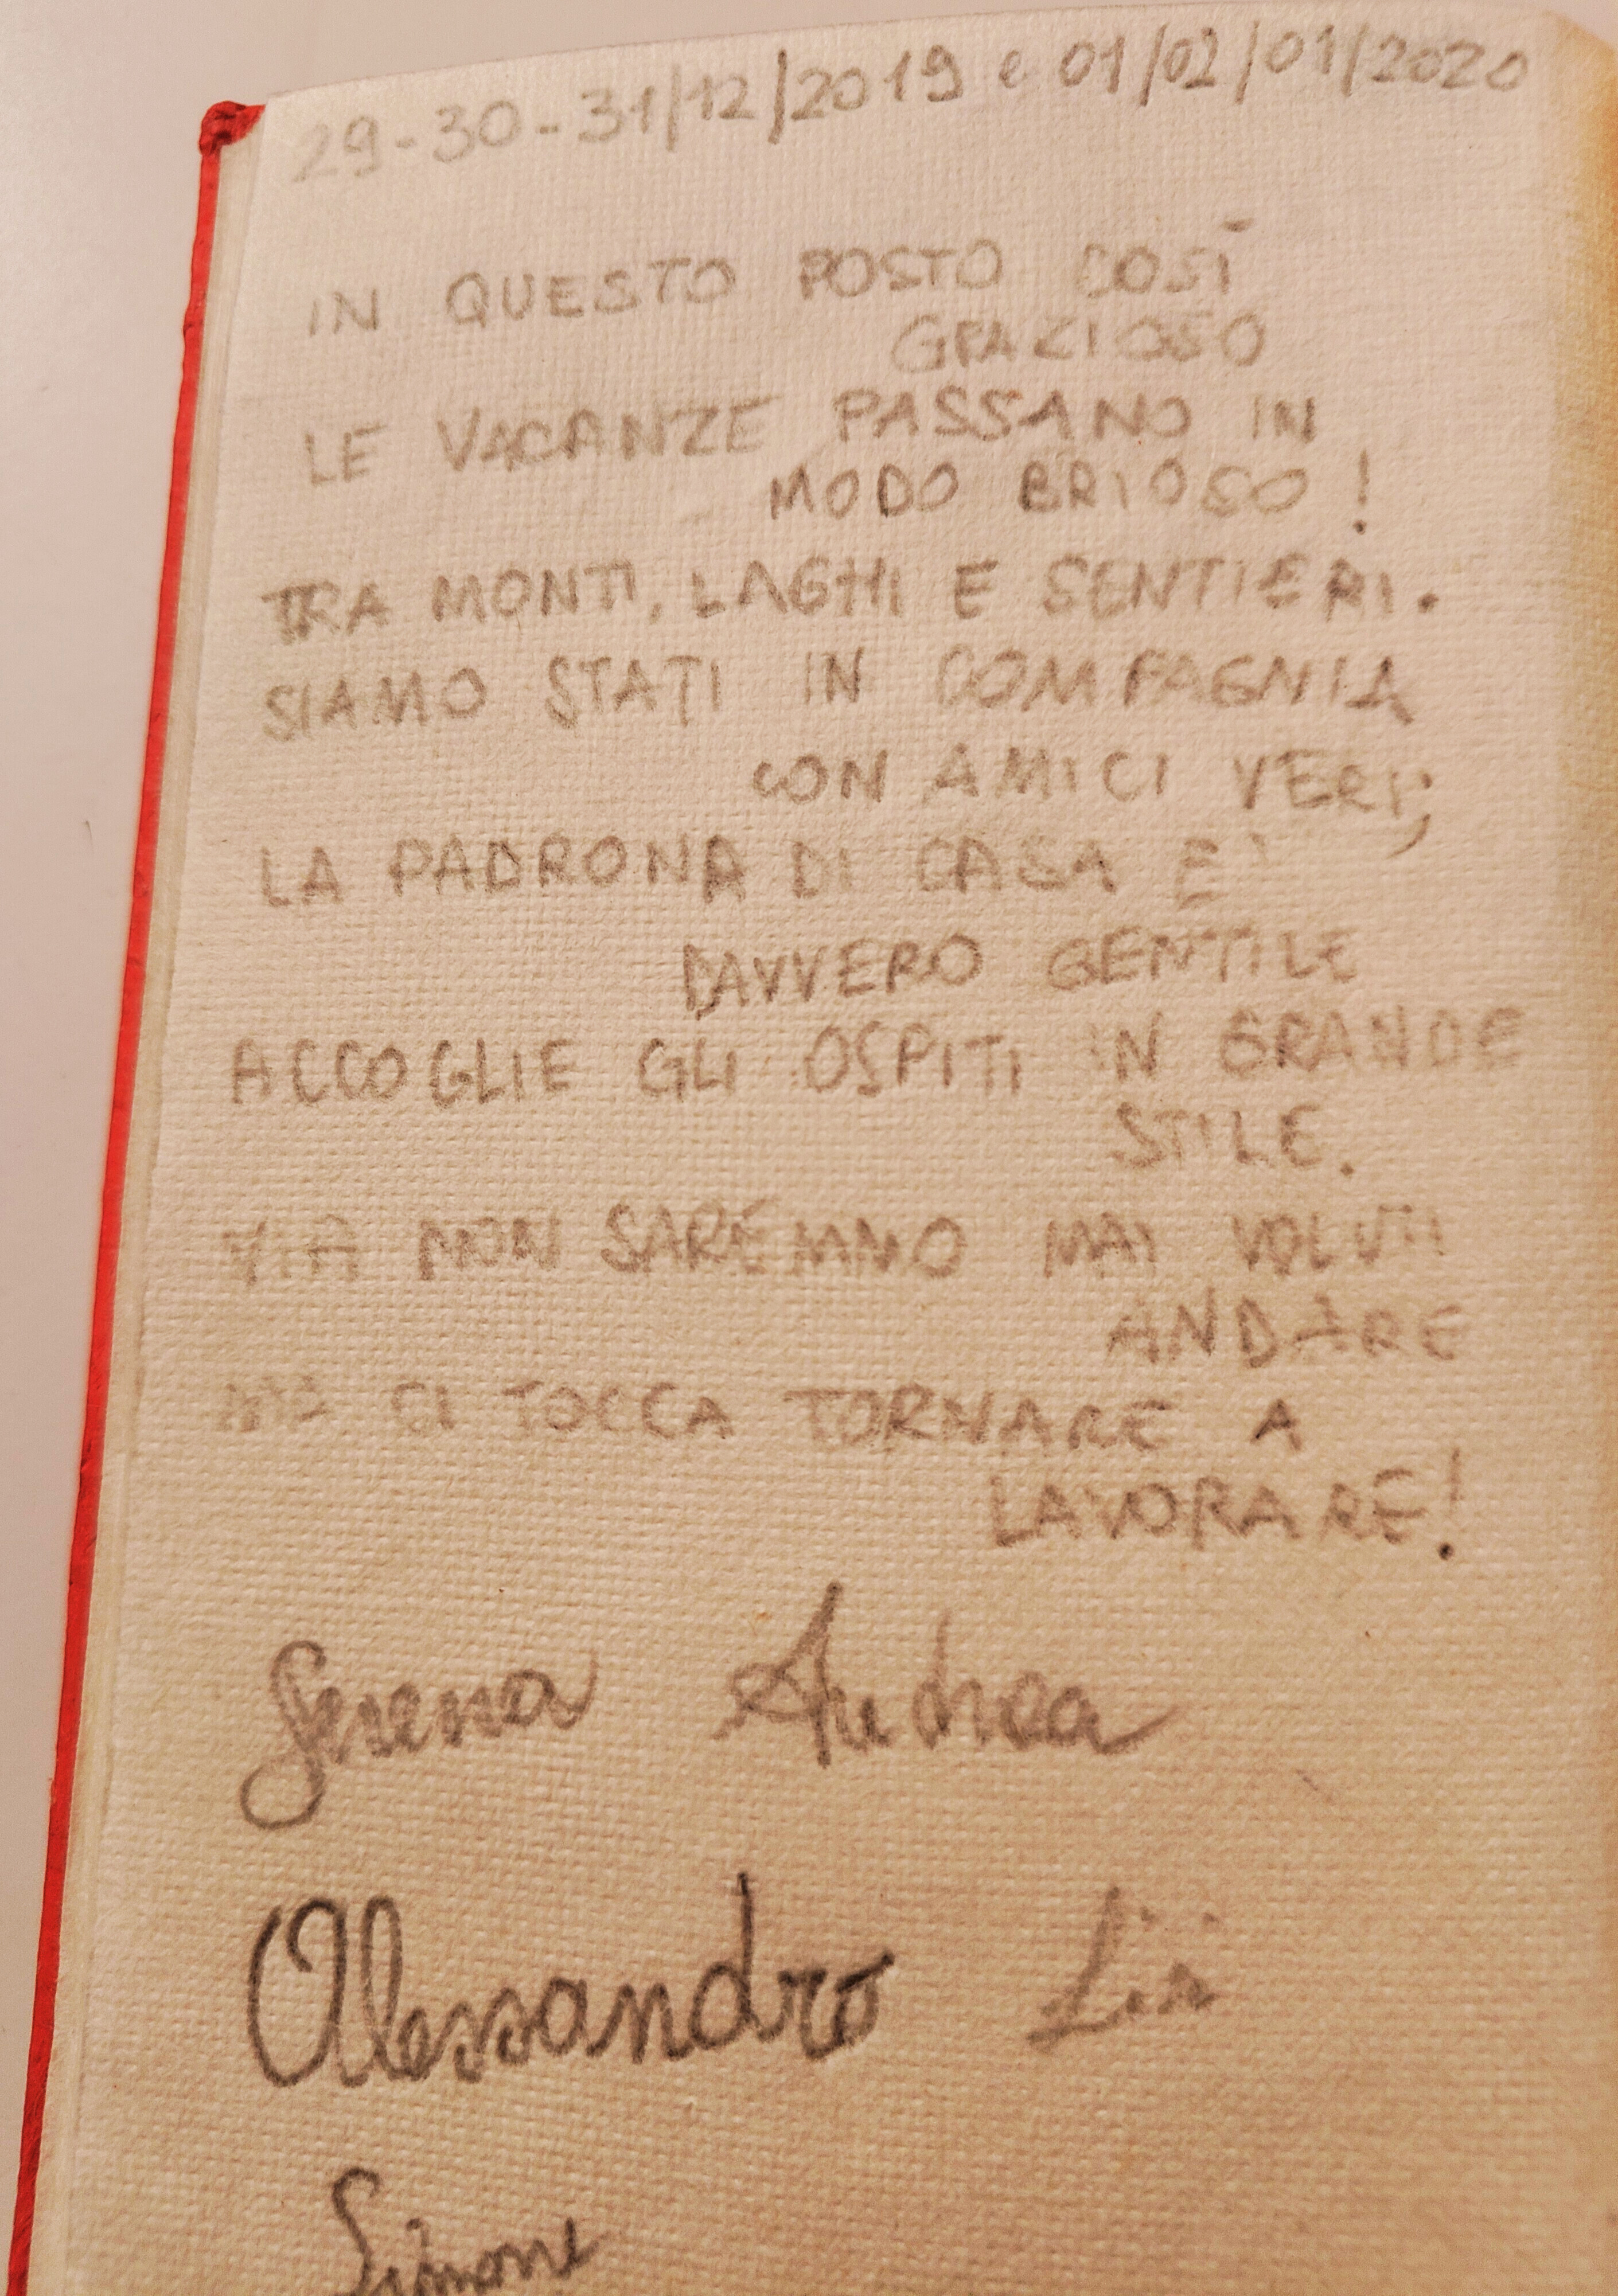 29-30-31/12/2019 e 01/02/01/2020
IN QUESTO POSTO COSÌ
GRAZIOSO
LE VACANZE PASSANO IN
MODO BRIOSO!
TRA MONTI, LAGHI E SENTIERI.
SIAMO STATI IN COMPAGNIA
CON AMICI VERI;
LA PADRONA DI CASA E'
DAVVERO GENTILE
ACCOGLIE GLI OSPITI IN GRANDE
STILE.
VIA NON SAREMMO MAI VOLUTI
ANDARE
MA CI TOCCA TORNARE A
LAVORARE!
Serena Andrea
Alessandro
Simone